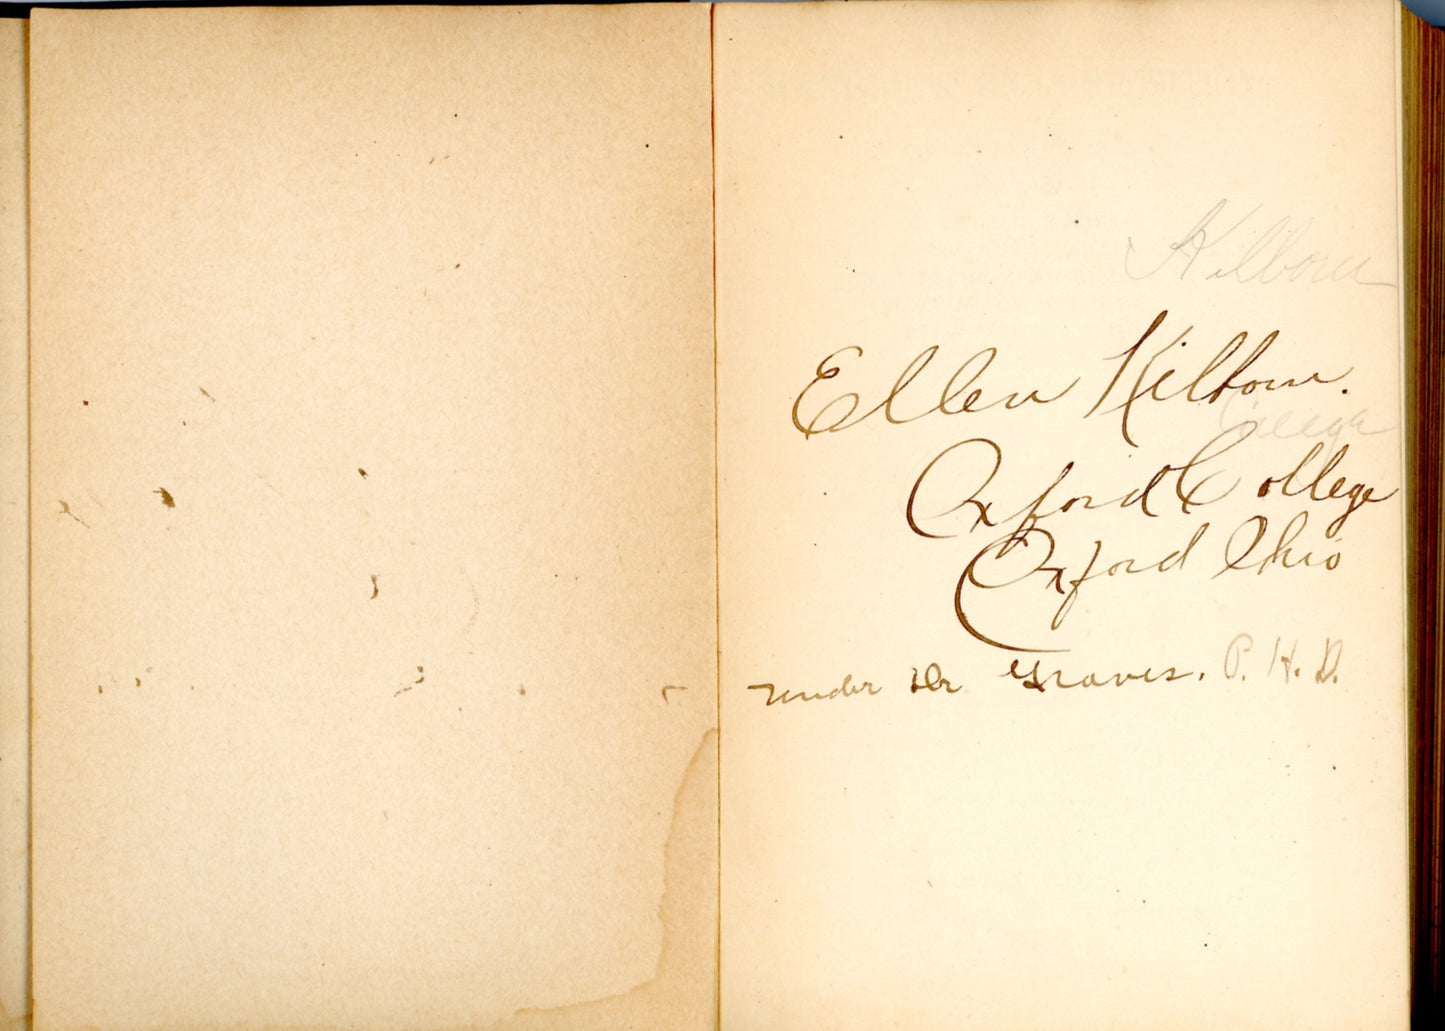 Kilbourn
Ellen Kilbourn.
College
Oxford College
Oxford Ohio
under Dr Graves. P. H. D.